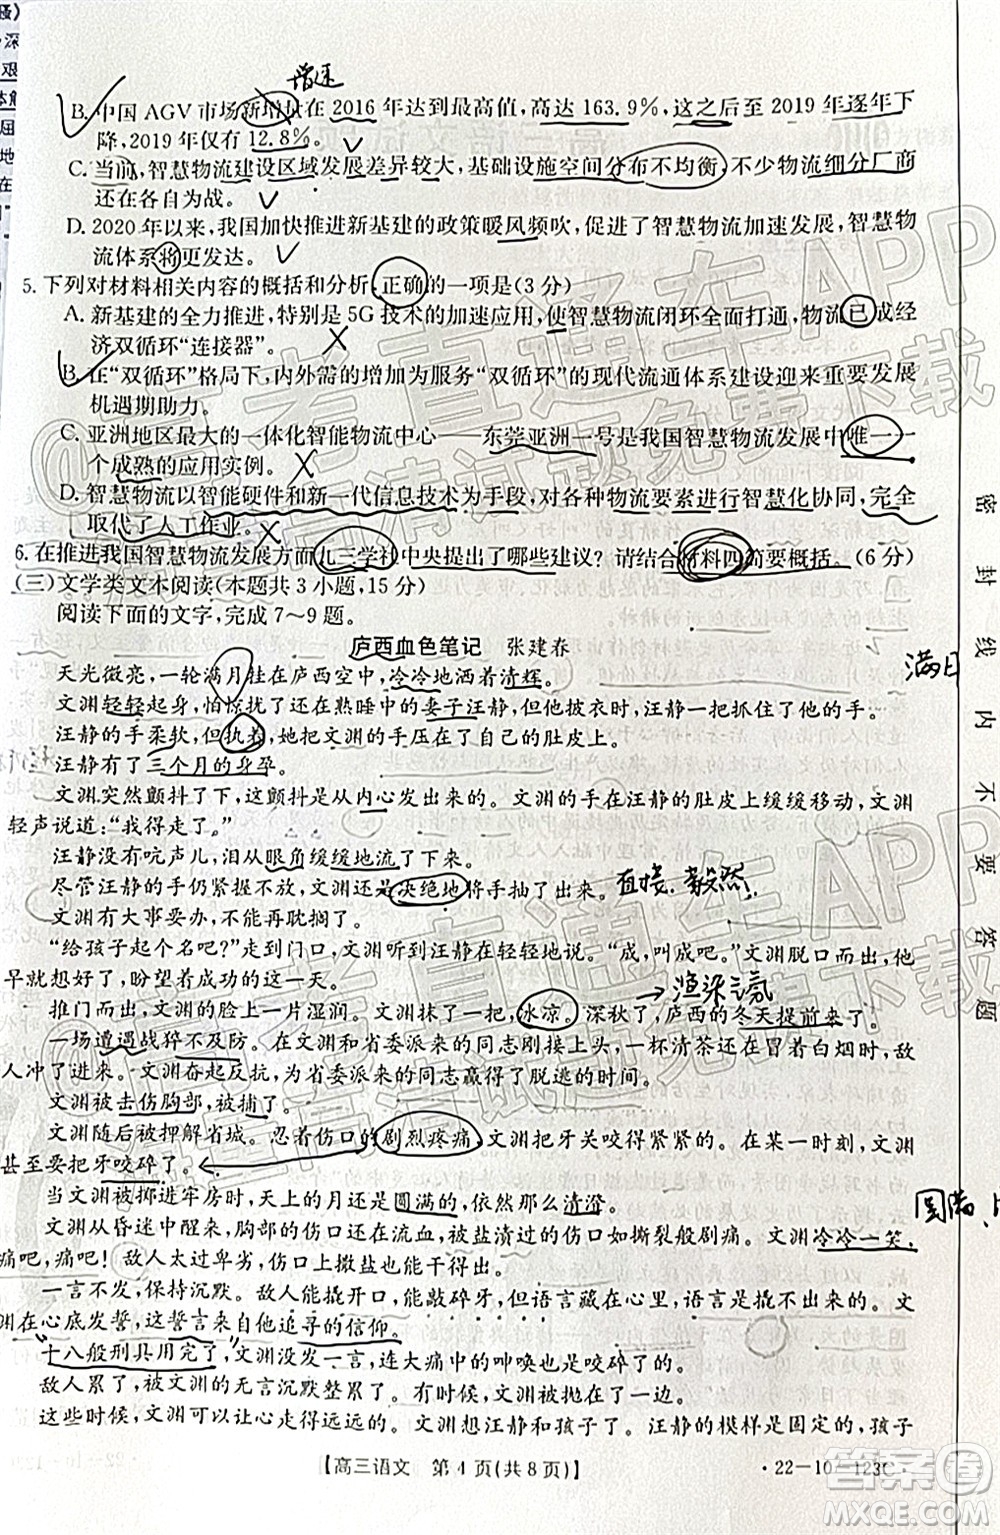 增速
B. 中国 AGV 市场新增量在 2016 年达到最高值，高达 163.9%，这之后至 2019 年逐年下
降，2019 年仅有 12.8%。
C. 当前，智慧物流建设区域发展差异较大，基础设施空间分布不均衡，不少物流细分厂商
还在各自为战。
D. 2020 年以来，我国加快推进新基建的政策暖风频吹，促进了智慧物流加速发展，智慧物
流体系将更发达。
5. 下列对材料相关内容的概括和分析，正确的一项是(3 分)
A. 新基建的全力推进，特别是 5G 技术的加速应用，使智慧物流闭环全面打通，物流已成经
济双循环“连接器”。
B. 在“双循环”格局下，内外需的增加为服务“双循环”的现代流通体系建设迎来了一个有利
机遇期助力。
C. 亚洲地区最大的一体化智能物流中心——东莞亚洲一号是我国智慧物流发展中唯一一
个成熟的应用实例。
D. 智慧物流以智能硬件和新一代信息技术为手段，对各种物流要素进行智慧化协同，完全
取代了人工作业。
6. 在推进我国智慧物流发展方面九三学社中央提出了哪些建议？请结合材料四简要概括。(6 分)
(三)文学类文本阅读(本题共 3 小题，15 分)
阅读下面的文字，完成 7～9 题。
庐西血色笔记 张建春
天光微亮，一轮满月挂在庐西空中，冷冷地洒着清辉。
满月
文渊轻轻起身，怕惊扰了在熟睡中的妻子汪静，但他披衣时，汪静一把抓住了他的手。
汪静的手柔软，但执着，她把文渊的手压在了肚皮上。
汪静有了三个月的身孕。
文渊突然颤抖了下，这颤抖是从内心发出来的。文渊的手在汪静的肚皮上缓缓移动，文渊
轻声说道：“我得走了。”
汪静没有吭声儿，泪从眼角缓缓地流了下来。
尽管汪静的手仍紧握不放，文渊还是决绝地将手抽了出来。
直接、毅然
文渊有大事要办，不能再耽搁了。
“给孩子起个名吧？”走到门口，文渊听到汪静在轻轻地说。“成，叫成吧。”文渊脱口而出，
早就想好了，盼望着成功的这一天。
→渲染氛
推门而出，文渊的脸上一片湿润。文渊抹了一把，冰凉。深秋了，庐西的冬天提前来了。
一场遭遇战猝不及防。文渊和省委派来的同志刚接上头，一杯清茶还在冒着白烟时，敌
人冲了进来。文渊奋起反抗，为省委派来的同志赢得了脱逃的时间。
文渊被击伤胸部，被捕了。
文渊随后被押解省城。忍着伤口的剧烈疼痛，文渊把牙关咬得紧紧的。在某一时刻，文渊
甚至要把牙咬碎了。
当文渊被掷进牢房时，天上的月还是圆满的，依然那么清澄。
圆满、
文渊从昏迷中醒来，胸部的伤口还在流血，被盐渍过的伤口如撕裂般剧痛。文渊冷冷一笑，
痛吧，痛吧！敌人太过卑劣，伤口上撒盐也能干得出。
一言不发，保持沉默。敌人能撬开嘴，能敲碎牙，但语言藏在心里，语言是撬不出来的。文
渊在心底发着誓，这誓言来自他追寻的信仰。
十八般刑具用完了，文渊没发一言，连大痛中的呻唤也咬碎了。
敌人累了，被文渊的无言沉默整累了。文渊被抛在了一边。
这些时候，文渊可以让心走得远远的。文渊想汪静和孩子了。汪静的模样是固定的，孩子
密 封 线 内 不 要 答 题
【高三语文 第 4 页(共 8 页)】
·22-10-123C·
答案圈
MXQE.COM